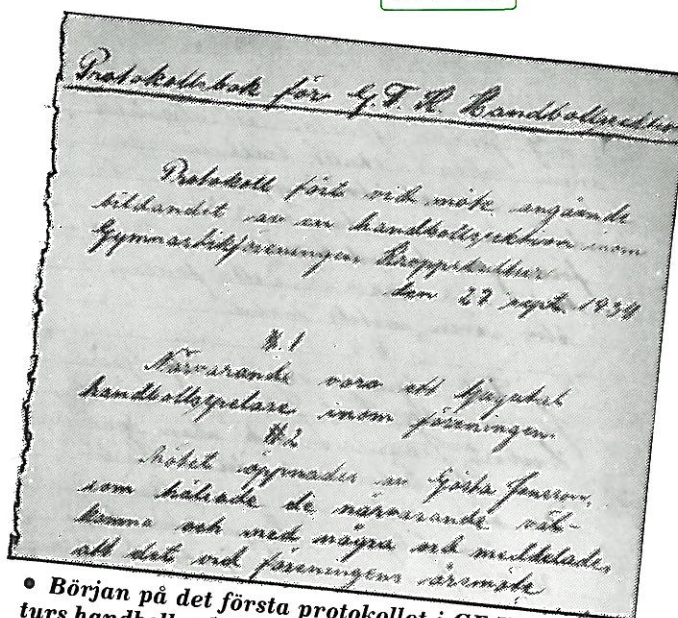 Protokollsbok för G.F.K. Handbollsektion
Protokoll fört vid möte angående
bildandet av en handbollssektion inom
Gymnastikföreningen Kroppskultur
den 27 sept. 1934
§ 1
Närvarande voro ett tjugutal
handbollsspelare inom föreningen.
§ 2
Mötet öppnades av Gösta Jonsson,
som hälsade de närvarande väl-
komna och med några ord meddelade,
att det vid föreningens årsmöte
• Början på det första protokollet i GF
turs